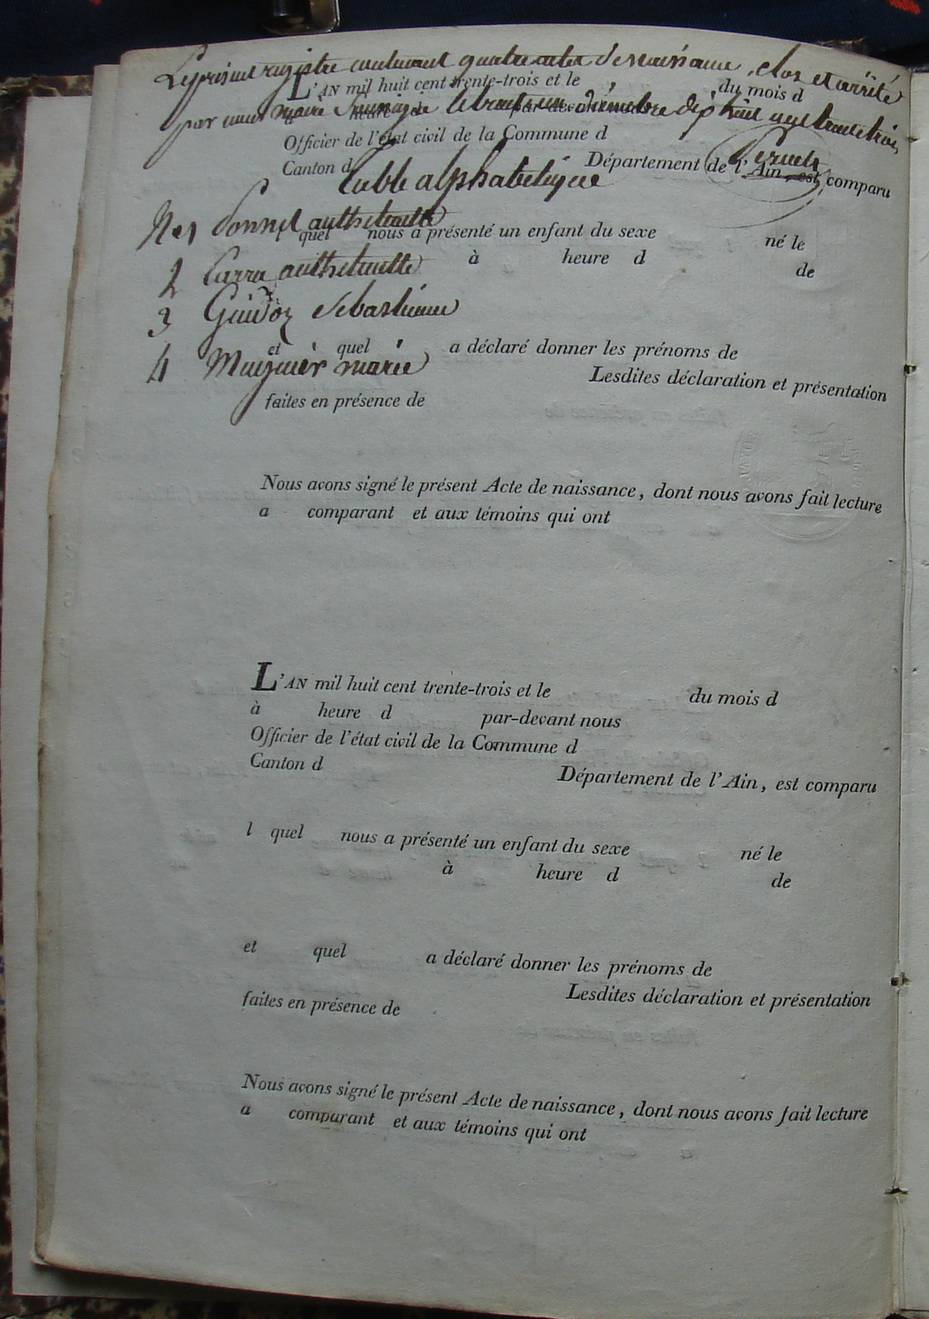 Le present registre contenant quatre actes de naissance, clos et arrêté
L'AN mil huit cent trente-trois et le du mois d
par nous maire le trente un décembre dix huit cent trente trois
Officier de l'état civil de la Commune d
Canton d Département de l'Ain, est comparu
table alphabétique
Nos 1 anthelmette
quel nous a présenté un enfant du sexe né le
2 Carra anthelmette
à heure d de
3 Guidoz Sebastienne
et quel a déclaré donner les prénoms de
4 Mugnier marie
Lesdites déclaration et présentation
faites en présence de
Nous avons signé le présent Acte de naissance, dont nous avons fait lecture
a comparant et aux témoins qui ont
L'AN mil huit cent trente-trois et le du mois d
à heure d par-devant nous
Officier de l'état civil de la Commune d
Canton d
Département de l'Ain, est comparu
l quel nous a présenté un enfant du sexe né le
à heure d de
et quel a déclaré donner les prénoms de
Lesdites déclaration et présentation
faites en présence de
Nous avons signé le présent Acte de naissance, dont nous avons fait lecture
a comparant et aux témoins qui ont